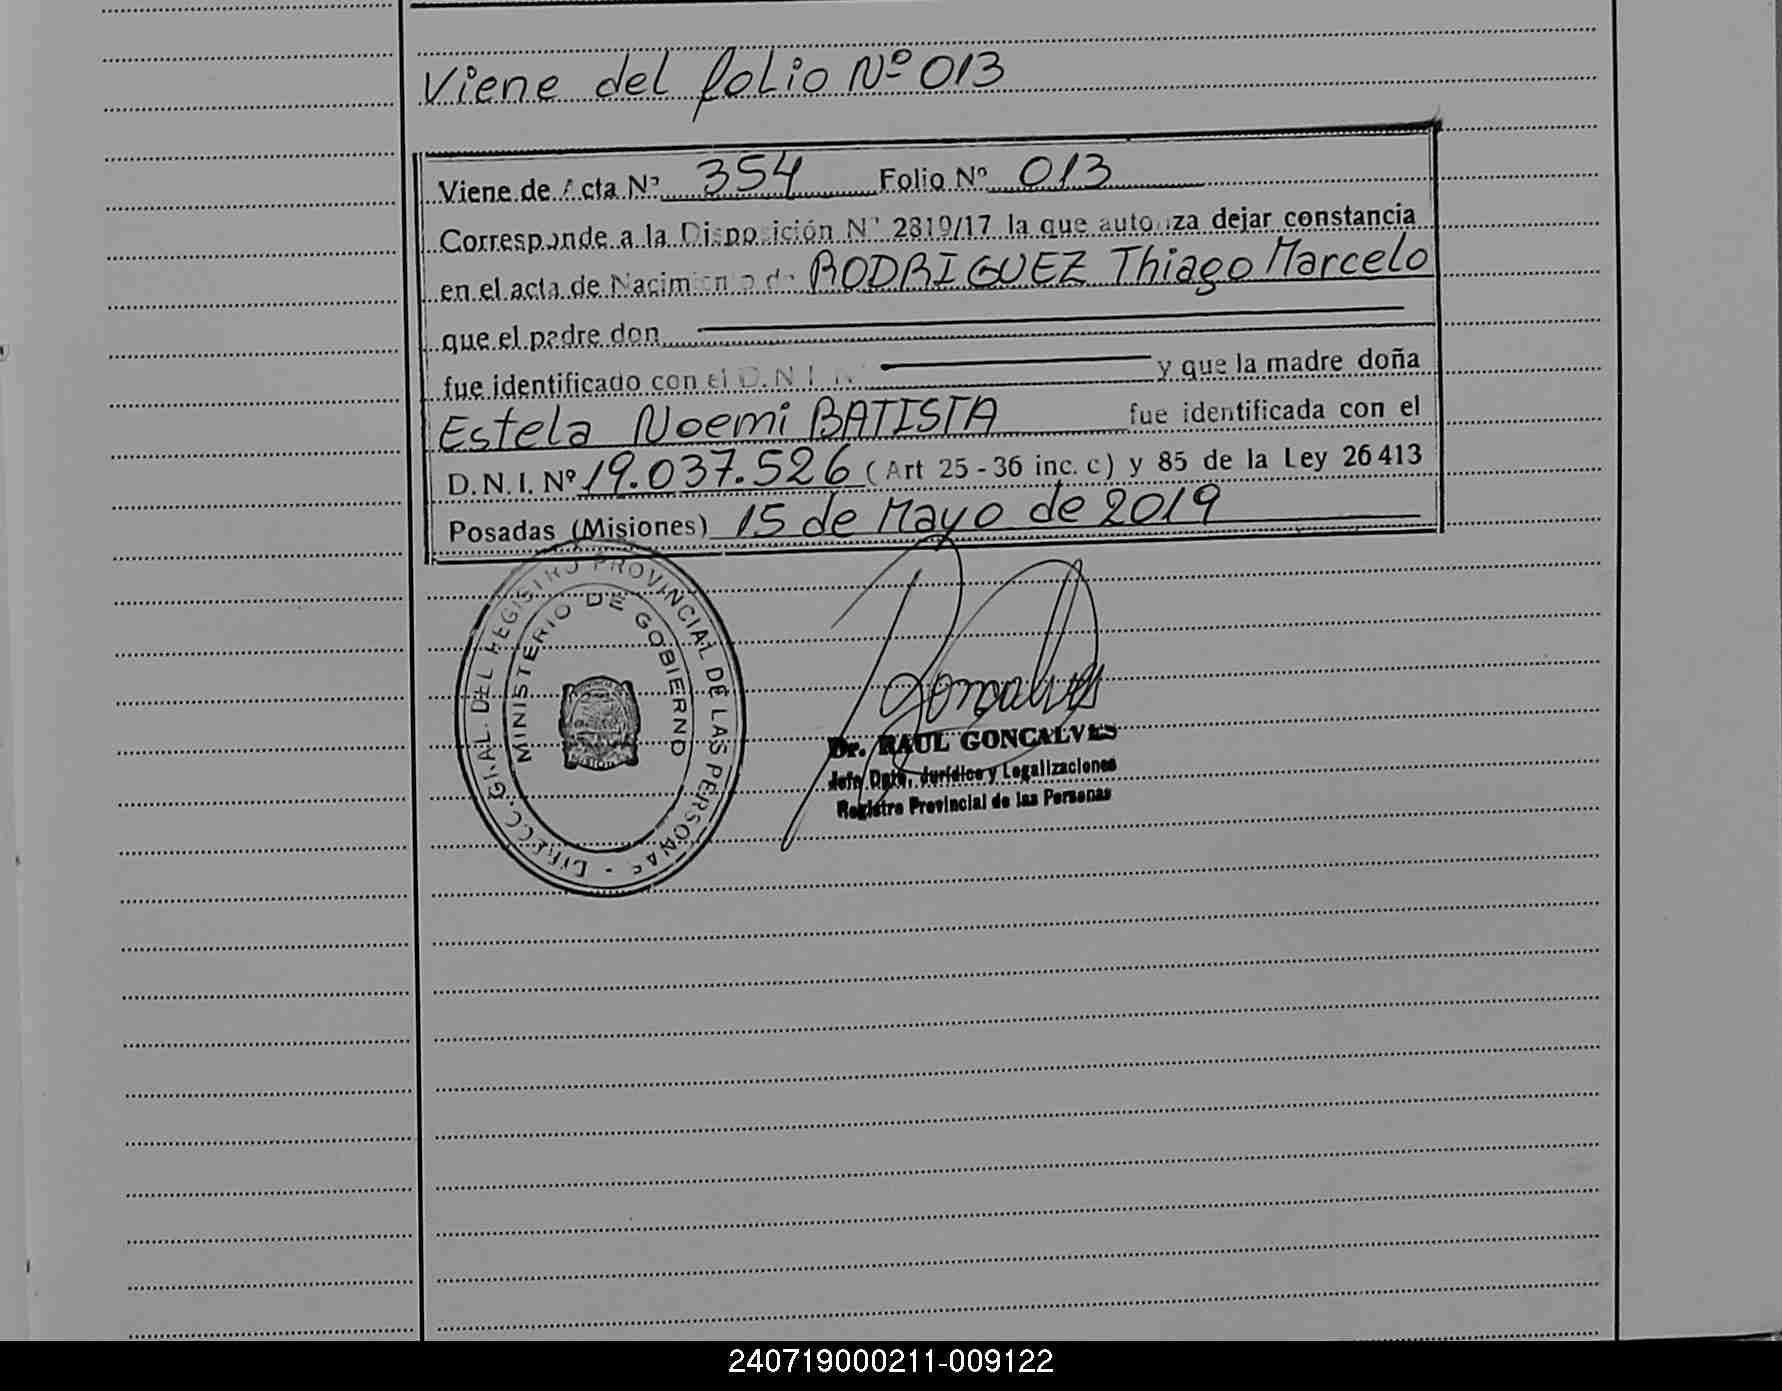 Viene del folio Nº 013
Viene de Acta Nº 354 Folio Nº 013
Corresponde a la Disposición Nº 2819/17 la que autoriza dejar constancia
en el acta de Nacimiento de RODRIGUEZ Thiago Marcelo
que el padre don
fue identificado con el D.N.I. Nº y que la madre doña
Estela Noemi BATISTA fue identificada con el
D.N.I. Nº 19.037.526 (Art 25-36 inc. c) y 85 de la Ley 26413
Posadas (Misiones) 15 de Mayo de 2019
DIRECC. GRAL. DEL REGISTRO PROVINCIAL DE LAS PERSONAS -
MINISTERIO DE GOBIERNO
Goncalves
Dr. RAUL GONCALVES
Jefe Dpto. Jurídico y Legalizaciones
Registro Provincial de las Personas
240719000211-009122